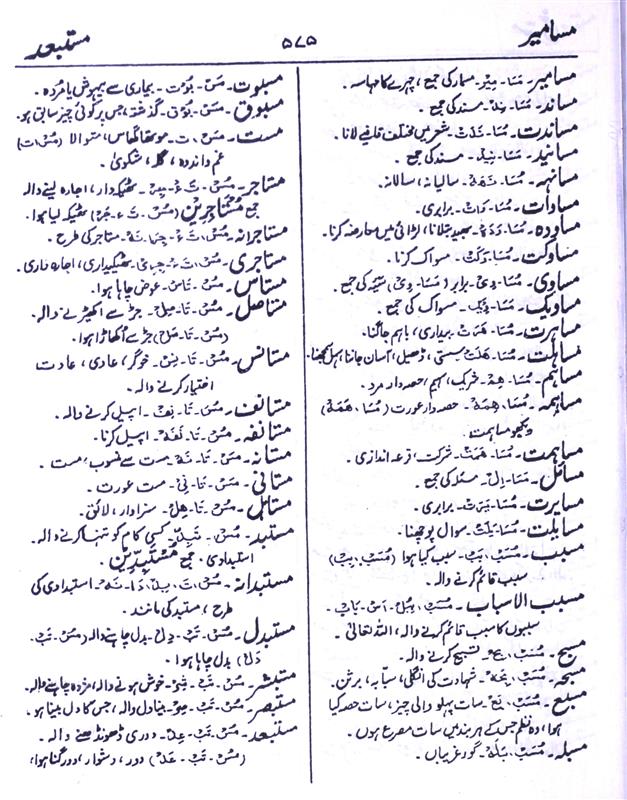 مسامیر
۵۷۵
مستبعد
مسامیر۔ مَسَا۔ مِیْر۔ مسمار کی جمع، چہرے کا مہاسہ۔
مساند۔ مَسَا۔ نِدْ۔ مسند کی جمع۔
مساندت۔ مُسَا۔ نَدَتْ۔ شعر میں مختلف قافیے لانا۔
مسانید۔ مَسَا۔ نِیْد۔ مسند کی جمع۔
مسانہہ۔ مُسَا۔ نَہَہْ۔ سالیانہ، سالانہ۔
مساوات۔ مُسَا۔ وَاتْ۔ برابری۔
مساودہ۔ مُسَا۔ وَدَہْ۔ بھید بتلانا، لڑائی میں معارضہ کرنا۔
مساوکت۔ مُسَا۔ وَکَتْ۔ مسواک کرنا۔
مساوی۔ مُسَا۔ وِیْ۔ برابر (مَسَا۔ وِیْ) کی جمع۔
مساویک۔ مَسَا۔ وِیْکْ۔ مسواک کی جمع۔
مساہرت۔ مُسَا۔ ہَرَتْ۔ بیداری، باہم جاگنا۔
مساہلت۔ مُسَا۔ ہَلَتْ۔ سستی، ڈھیل، آسان جاننا، سہل سمجھنا۔
مساہم۔ مُسَا۔ ہِمْ۔ شریک، سہیم، حصہ دار مرد۔
مساہمہ۔ مُسَا۔ ہِمَہْ۔ حصہ دار عورت (مُسَا۔ ہَمَہْ)
دیکھو مساہمت۔
مساہمت۔ مُسَا۔ ہَمَتْ۔ شرکت، قرعہ اندازی۔
مسائل۔ مَسَا۔ اِلْ۔ مسئلہ کی جمع۔
مسایرت۔ مُسَا۔ یَرَتْ۔ برابری۔
مسایلت۔ مُسَا۔ یَلَتْ۔ سوال پوچھنا۔
مسبب۔ مُسَبْ۔ بَبْ۔ سبب کیا ہوا (مُسَبْ۔ بِبْ)
سبب قائم کرنے والہ۔
مسبب الاسباب۔ مُسَبْ۔ بِبُلْ۔ اَسْ۔ بَابْ۔
سببوں کا سبب قائم کرنے والہ، اللہ تعالیٰ۔
مسبح۔ مُسَبْ۔ بِحْ۔ تسبیح کرنے والہ۔
مسبحہ۔ مُسَبْ۔ بِحَہْ۔ شہادت کی انگلی، سبابہ،
مسبع۔ مُسَبْ۔ بَعْ۔ سات پہلو والی چیز، سات حصہ کیا
ہوا، وہ نظم جس کے ہر بند میں سات مصرع ہوں۔
مسبلہ۔ مُسَبْ۔ بَلَہْ۔ گورغریباں۔
مسبوت۔ مَسْ۔ بُوْت۔ بیماری سے بیہوش یا مردہ۔
مسبوق۔ مَسْ۔ بُوْق۔ گذشتہ، جس پر کوئی چیز سابق ہو۔
مست۔ مَسْ، ت۔ موتھا گھاس، متوالا (مُسْ، ت)
غم و اندوہ، گلہ، شکویٰ۔
مستاجر۔ مُسْ۔ تَ ءْ۔ جِرْ۔ ٹھیکہ دار، اجارہ لینے والہ
جمع مُسْتَاجِرِیْن (مُسْ۔ تَ ءْ۔ جَرْ) ٹھیکہ لیا ہوا۔
مستاجرانہ۔ مُسْ، تَ ءْ، جِرَا۔ نَہْ۔ مستاجر کی طرح۔
مستاجری۔ مُسْ، تَ ءْ، جِرِیْ۔ ٹھیکیداری، اجارہ داری۔
مستاس۔ مُسْ۔ تَاسْ۔ عوض چاہا ہوا۔
مستاصل۔ مُسْ۔ تَا۔ صِلْ۔ جڑ سے اکھیڑنے والہ۔
(مُسْ۔ تَا۔ صَلْ) جڑ سے اُکھاڑا ہوا۔
مستانس۔ مُسْ۔ تَا۔ نِسْ۔ خوگر، عادی، عادت
اختیار کرنے والہ۔
مستانف۔ مُسْ۔ تَا۔ نِفْ۔ اپیل کرنے والہ۔
مستانفہ۔ مُسْ۔ تَا۔ نَفَہْ۔ اپیل کرنا۔
مستانہ۔ مَسْ۔ تَا۔ نَہْ۔ مست سے منسوب، مست۔
مستانی۔ مَسْ۔ تَا۔ نِیْ۔ مست عورت۔
مستاہل۔ مُسْ۔ تَا۔ ہِلْ۔ سزاوار، لائق۔
مستبد۔ مُسْ۔ تَبِدْ۔ کسی کام کو تنہا کرنے والہ۔
استبدادی۔ جمع مُسْتَبِدِّیْن۔
مستبدانہ۔ مُسْ، تَ، بِدْ، دَا۔ نَہْ۔ استبدادی کی
طرح، مستبد کی مانند۔
مستبدل۔ مُسْ۔ تَبْ۔ دِلْ۔ بدل چاہنے والہ (مُسْ۔ تَبْ۔
دَلْ) بدل چاہا ہوا۔
مستبشر۔ مُسْ۔ تَبْ۔ شِرْ۔ خوش ہونے والہ، مژدہ چاہنے والہ۔
مستبصر۔ مُسْ۔ تَبْ۔ صِرْ۔ بینا دل والہ، جس کا دل بینا ہو۔
مستبعد۔ مُسْ۔ تَبْ۔ عِدْ۔ دوری ڈھونڈھنے والہ۔
(مُسْ۔ تَبْ۔ عَدْ) دور، دشوار، دور گنا ہوا،